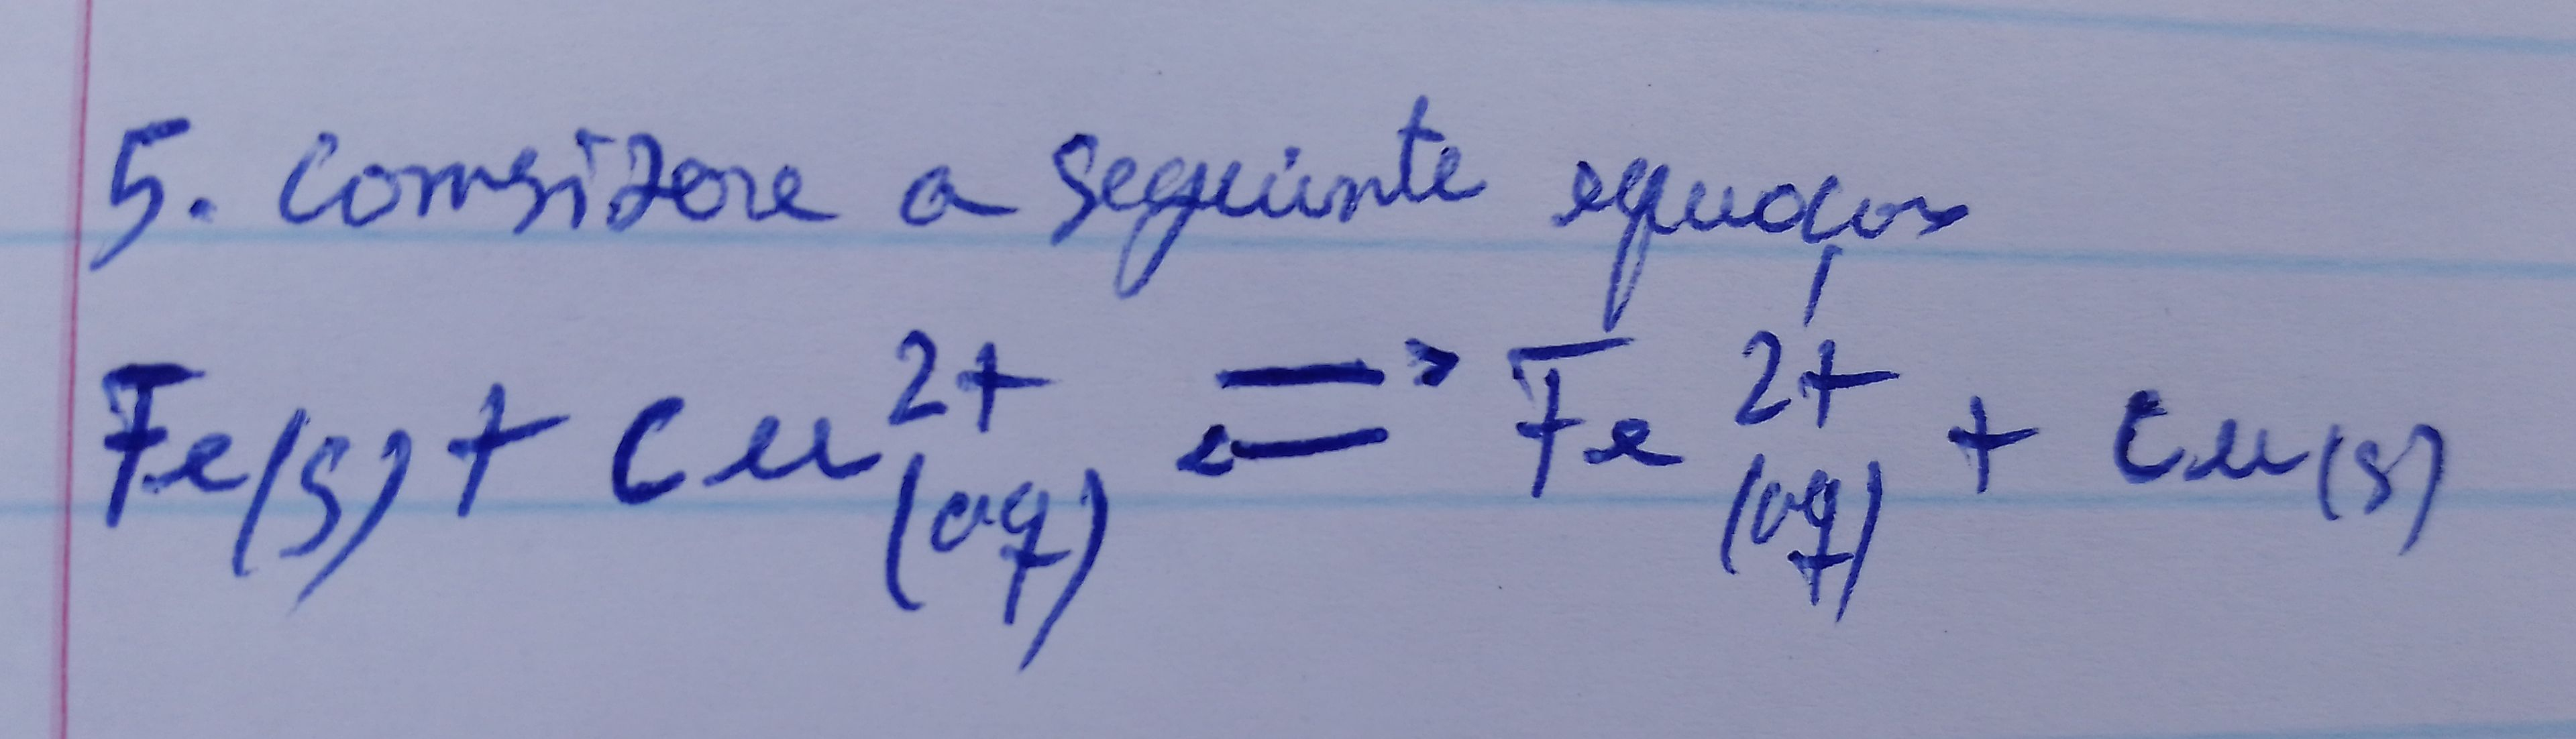 5. Considere a seguinte equação
Fe(s) + Cu²⁺(aq) ⇌ Fe²⁺(aq) + Cu(s)